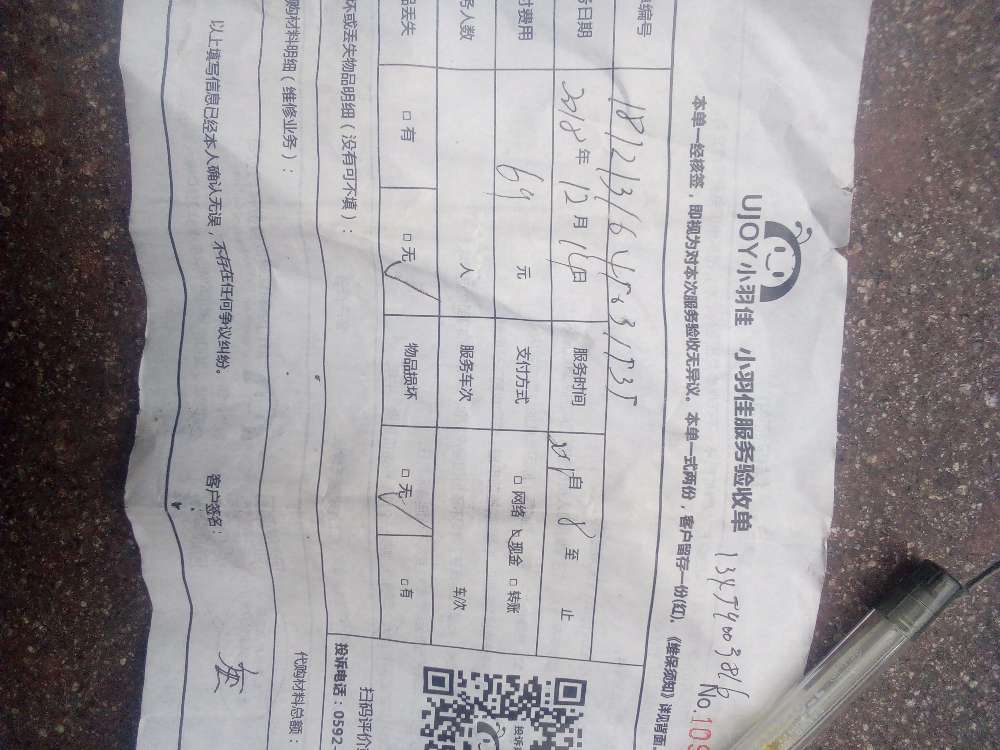 UJOY小羽佳 小羽佳服务验收单
本单一经核签，即视为对本次服务验收无异议。本单一式两份，客户留存一份(红)，《维保须知》详见背面
No.109
编号
日期 2018年12月16日 服务时间 自 8 至 止
费用 69 元 支付方式 □网络 ☑现金 □转账
人数 人 服务车次 车次
丢失 □有 □无✓ 物品损坏 □无✓ □有
坏或丢失物品明细（没有可不填）：
购材料明细（维修业务）：
代购材料总额：
以上填写信息已经本人确认无误，不存在任何争议纠纷。 客户签名：
扫码评价
投诉电话：0592-